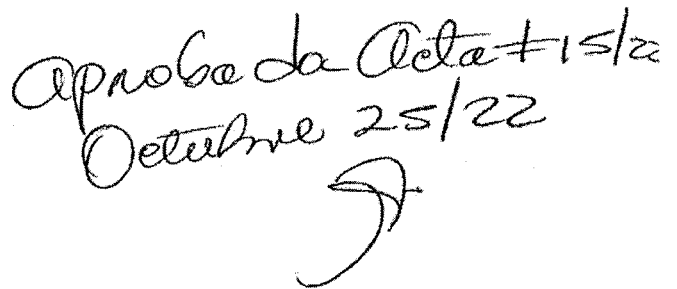 Aprobada Acta #15/22
Octubre 25/22